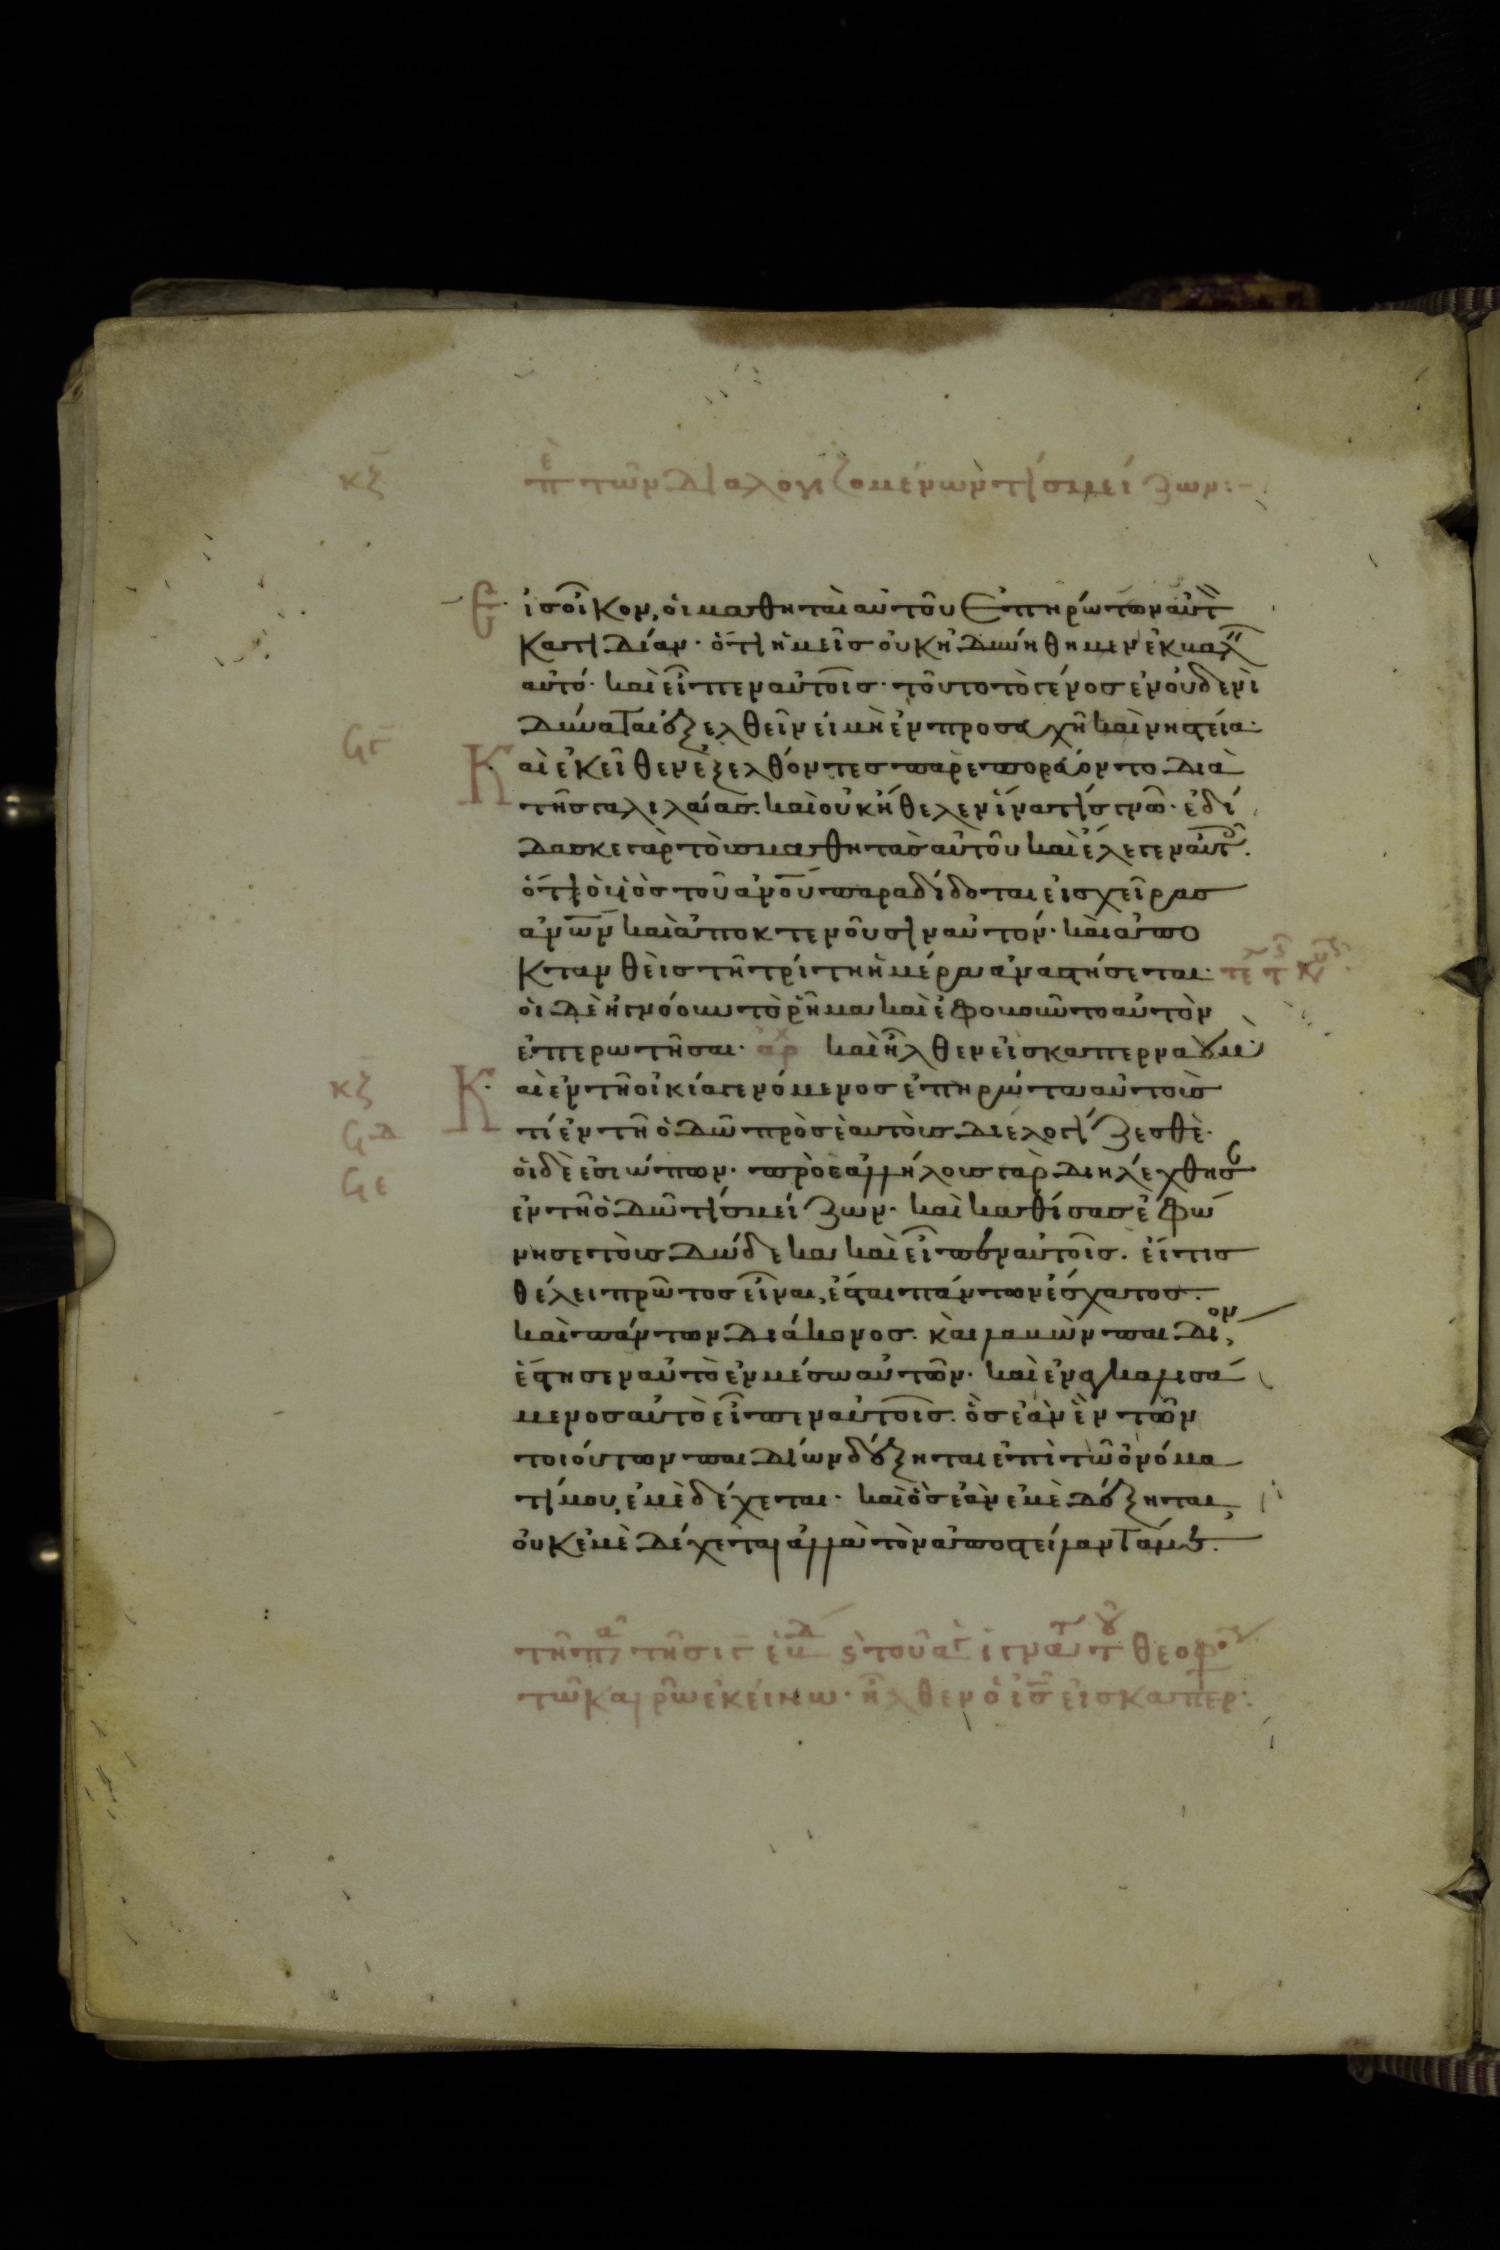 κζ περὶ τῶν διαλογιζομένων τίς μείζων:-
Εἰς οἶκον, οἱ μαθηταὶ αὐτοῦ ἐπηρώτων αὐτὸν
κατιδίαν· ὅτι ἡμεῖς οὐκ ἠδυνήθημεν ἐκβαλεῖν
αὐτό· καὶ εἶπεν αὐτοῖς· τοῦτο τὸ γένος ἐν οὐδενὶ
δύναται ἐξελθεῖν εἰ μὴ ἐν προσευχῆ καὶ νηστεία·
Καὶ ἐκεῖθεν ἐξελθόντες παρεπορεύοντο διὰ
τῆς γαλιλαίας· καὶ οὐκ ἤθελεν ἵνα τίς γνῶ· ἐδί
δασκε γὰρ τοὺς μαθητὰς αὐτοῦ καὶ ἔλεγεν αὐτοῖς·
ὅτι ὁ υἱὸς τοῦ ἀνου παραδίδοται εἰς χεῖρας
ἀνων καὶ ἀποκτενοῦσιν αὐτόν· καὶ ἀπο
κτανθεὶς τῆ τρίτη ἡμέρα ἀναστήσεται·
οἱ δὲ ἠγνόουν τὸ ῥῆμα καὶ ἐφοβοῦντο αὐτὸν
ἐπερωτῆσαι· ἀρχ καὶ ἦλθεν εἰς καπερναούμ·
κζ Καὶ ἐν τῆ οἰκία γενόμενος ἐπηρώτα αὐτοὺς
τί ἐν τῆ ὁδῶ πρὸς ἑαυτοὺς διελογίζεσθε·
οἱ δὲ ἐσιώπων· πρὸς ἀλλήλους γὰρ διηλέχθησαν
ἐν τῆ ὁδῶ τίς μείζων· καὶ καθίσας ἐφώ
νησε τοὺς δώδεκα καὶ εἶπεν αὐτοῖς· εἴ τις
θέλει πρῶτος εἶναι, ἔσται πάντων ἔσχατος·
καὶ πάντων διάκονος· καὶ λαβὼν παιδίον,
ἔστησεν αὐτὸ ἐν μέσω αὐτῶν· καὶ ἐναγκαλισά
μενος αὐτὸ εἶπεν αὐτοῖς· ὃς ἐὰν ἓν τῶν
τοιούτων παιδίων δέξηται ἐπὶ τῶ ὀνόμα
τί μου, ἐμὲ δέχεται· καὶ ὃς ἐὰν ἐμὲ δέξηται,
οὐκ ἐμὲ δέχεται ἀλλὰ τὸν ἀποστείλαντά με·
τῶ καιρῶ ἐκείνω· ἦλθεν ὁ ις εἰς καπερ·